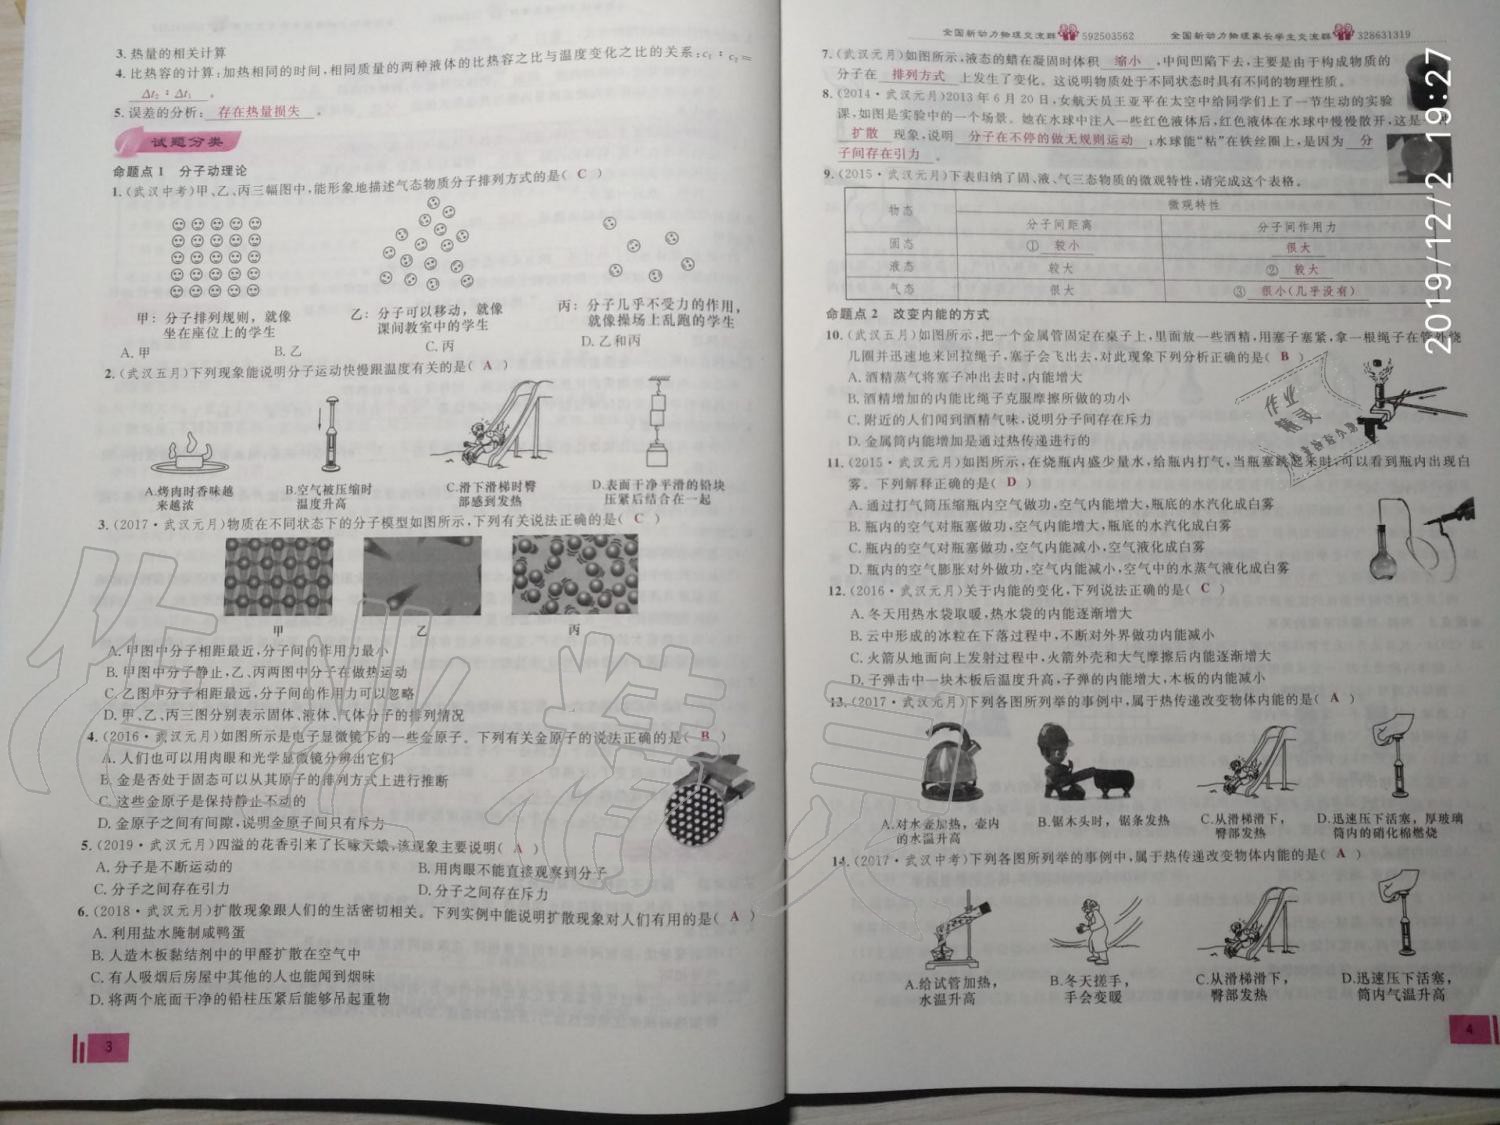 3. 热量的相关计算
4. 比热容的计算:加热相同的时间,相同质量的两种液体的比热容之比与温度变化之比的关系:c₁∶c₂=
Δt₂∶Δt₁。
5. 误差的分析:存在热量损失。
试题分类
命题点1 分子动理论
1.(武汉中考)甲、乙、丙三幅图中,能形象地描述气态物质分子排列方式的是( C )
甲:分子排列规则,就像
坐在座位上的学生
乙:分子可以移动,就像
课间教室中的学生
丙:分子几乎不受力的作用,
就像操场上乱跑的学生
A.甲 B.乙 C.丙 D.乙和丙
2.(武汉五月)下列现象能说明分子运动快慢跟温度有关的是( A )
A.烤肉时香味越
来越浓
B.空气被压缩时
温度升高
C.滑下滑梯时臀
部感到发热
D.表面干净平滑的铅块
压紧后结合在一起
3.(2017·武汉元月)物质在不同状态下的分子模型如图所示,下列有关说法正确的是( C )
甲 乙 丙
A.甲图中分子相距最近,分子间的作用力最小
B.甲图中分子静止,乙、丙两图中分子在做热运动
C.乙图中分子相距最远,分子间的作用力可以忽略
D.甲、乙、丙三图分别表示固体、液体、气体分子的排列情况
4.(2016·武汉元月)如图所示是电子显微镜下的一些金原子。下列有关金原子的说法正确的是( B )
A.人们也可以用肉眼和光学显微镜分辨出它们
B.金是否处于固态可以从其原子的排列方式上进行推断
C.这些金原子是保持静止不动的
D.金原子之间有间隙,说明金原子间只有斥力
5.(2019·武汉元月)四溢的花香引来了长喙天蛾,该现象主要说明( A )
A.分子是不断运动的 B.用肉眼不能直接观察到分子
C.分子之间存在引力 D.分子之间存在斥力
6.(2018·武汉元月)扩散现象跟人们的生活密切相关。下列实例中能说明扩散现象对人们有用的是( A )
A.利用盐水腌制咸鸭蛋
B.人造木板黏结剂中的甲醛扩散在空气中
C.有人吸烟后房屋中其他的人也能闻到烟味
D.将两个底面干净的铅柱压紧后能够吊起重物
3
全国新动力物理交流群592503562 全国新动力物理家长学生交流群328631319
7.(武汉元月)如图所示,液态的蜡在凝固时体积 缩小 ,中间凹陷下去,主要是由于构成物质的
分子在 排列方式 上发生了变化。这说明物质处于不同状态时具有不同的物理性质。
8.(2014·武汉元月)2013年6月20日,女航天员王亚平在太空中给同学们上了一节生动的实验
课,如图是实验中的一个场景。她在水球中注入一些红色液体后,红色液体在水球中慢慢散开,这是
扩散 现象,说明 分子在不停的做无规则运动 ;水球能“粘”在铁丝圈上,是因为 分
子间存在引力 。
9.(2015·武汉元月)下表归纳了固、液、气三态物质的微观特性,请完成这个表格。
物态 微观特性
分子间距离 分子间作用力
固态 ① 较小 很大
液态 较大 ② 较大
气态 很大 ③ 很小(几乎没有)
命题点2 改变内能的方式
10.(武汉五月)如图所示,把一个金属管固定在桌子上,里面放一些酒精,用塞子塞紧,拿一根绳子在管外绕
几圈并迅速地来回拉绳子,塞子会飞出去,对此现象下列分析正确的是( B )
A.酒精蒸气将塞子冲出去时,内能增大
B.酒精增加的内能比绳子克服摩擦所做的功小
C.附近的人们闻到酒精气味,说明分子间存在斥力
D.金属筒内能增加是通过热传递进行的
11.(2015·武汉元月)如图所示,在烧瓶内盛少量水,给瓶内打气,当瓶塞跳起来时,可以看到瓶内出现白
雾。下列解释正确的是( D )
A.通过打气筒压缩瓶内空气做功,空气内能增大,瓶底的水汽化成白雾
B.瓶内的空气对瓶塞做功,空气内能增大,瓶底的水汽化成白雾
C.瓶内的空气对瓶塞做功,空气内能减小,空气液化成白雾
D.瓶内的空气膨胀对外做功,空气内能减小,空气中的水蒸气液化成白雾
12.(2016·武汉元月)关于内能的变化,下列说法正确的是( C )
A.冬天用热水袋取暖,热水袋的内能逐渐增大
B.云中形成的冰粒在下落过程中,不断对外界做功内能减小
C.火箭从地面向上发射过程中,火箭外壳和大气摩擦后内能逐渐增大
D.子弹击中一块木板后温度升高,子弹的内能增大,木板的内能减小
13.(2017·武汉元月)下列各图所列举的事例中,属于热传递改变物体内能的是( A )
A.对水壶加热,壶内
的水温升高
B.锯木头时,锯条发热
C.从滑梯滑下,
臀部发热
D.迅速压下活塞,厚玻璃
筒内的硝化棉燃烧
14.(2017·武汉中考)下列各图所列举的事例中,属于热传递改变物体内能的是( A )
A.给试管加热,
水温升高
B.冬天搓手,
手会变暖
C.从滑梯滑下,
臀部发热
D.迅速压下活塞,
筒内气温升高
4
2019/12/2 19:27
作业精灵
作业
精灵